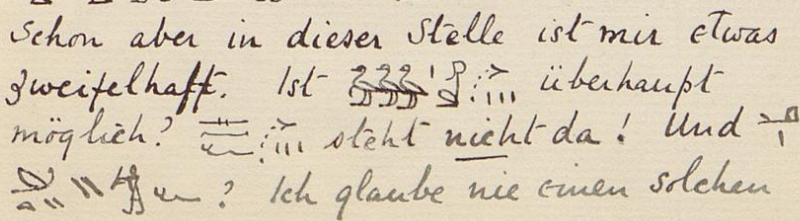 Schon aber in dieser Stelle ist mir etwas
zweifelhaft. Ist überhaupt
möglich? steht nicht da! Und
? Ich glaube nie einen solchen